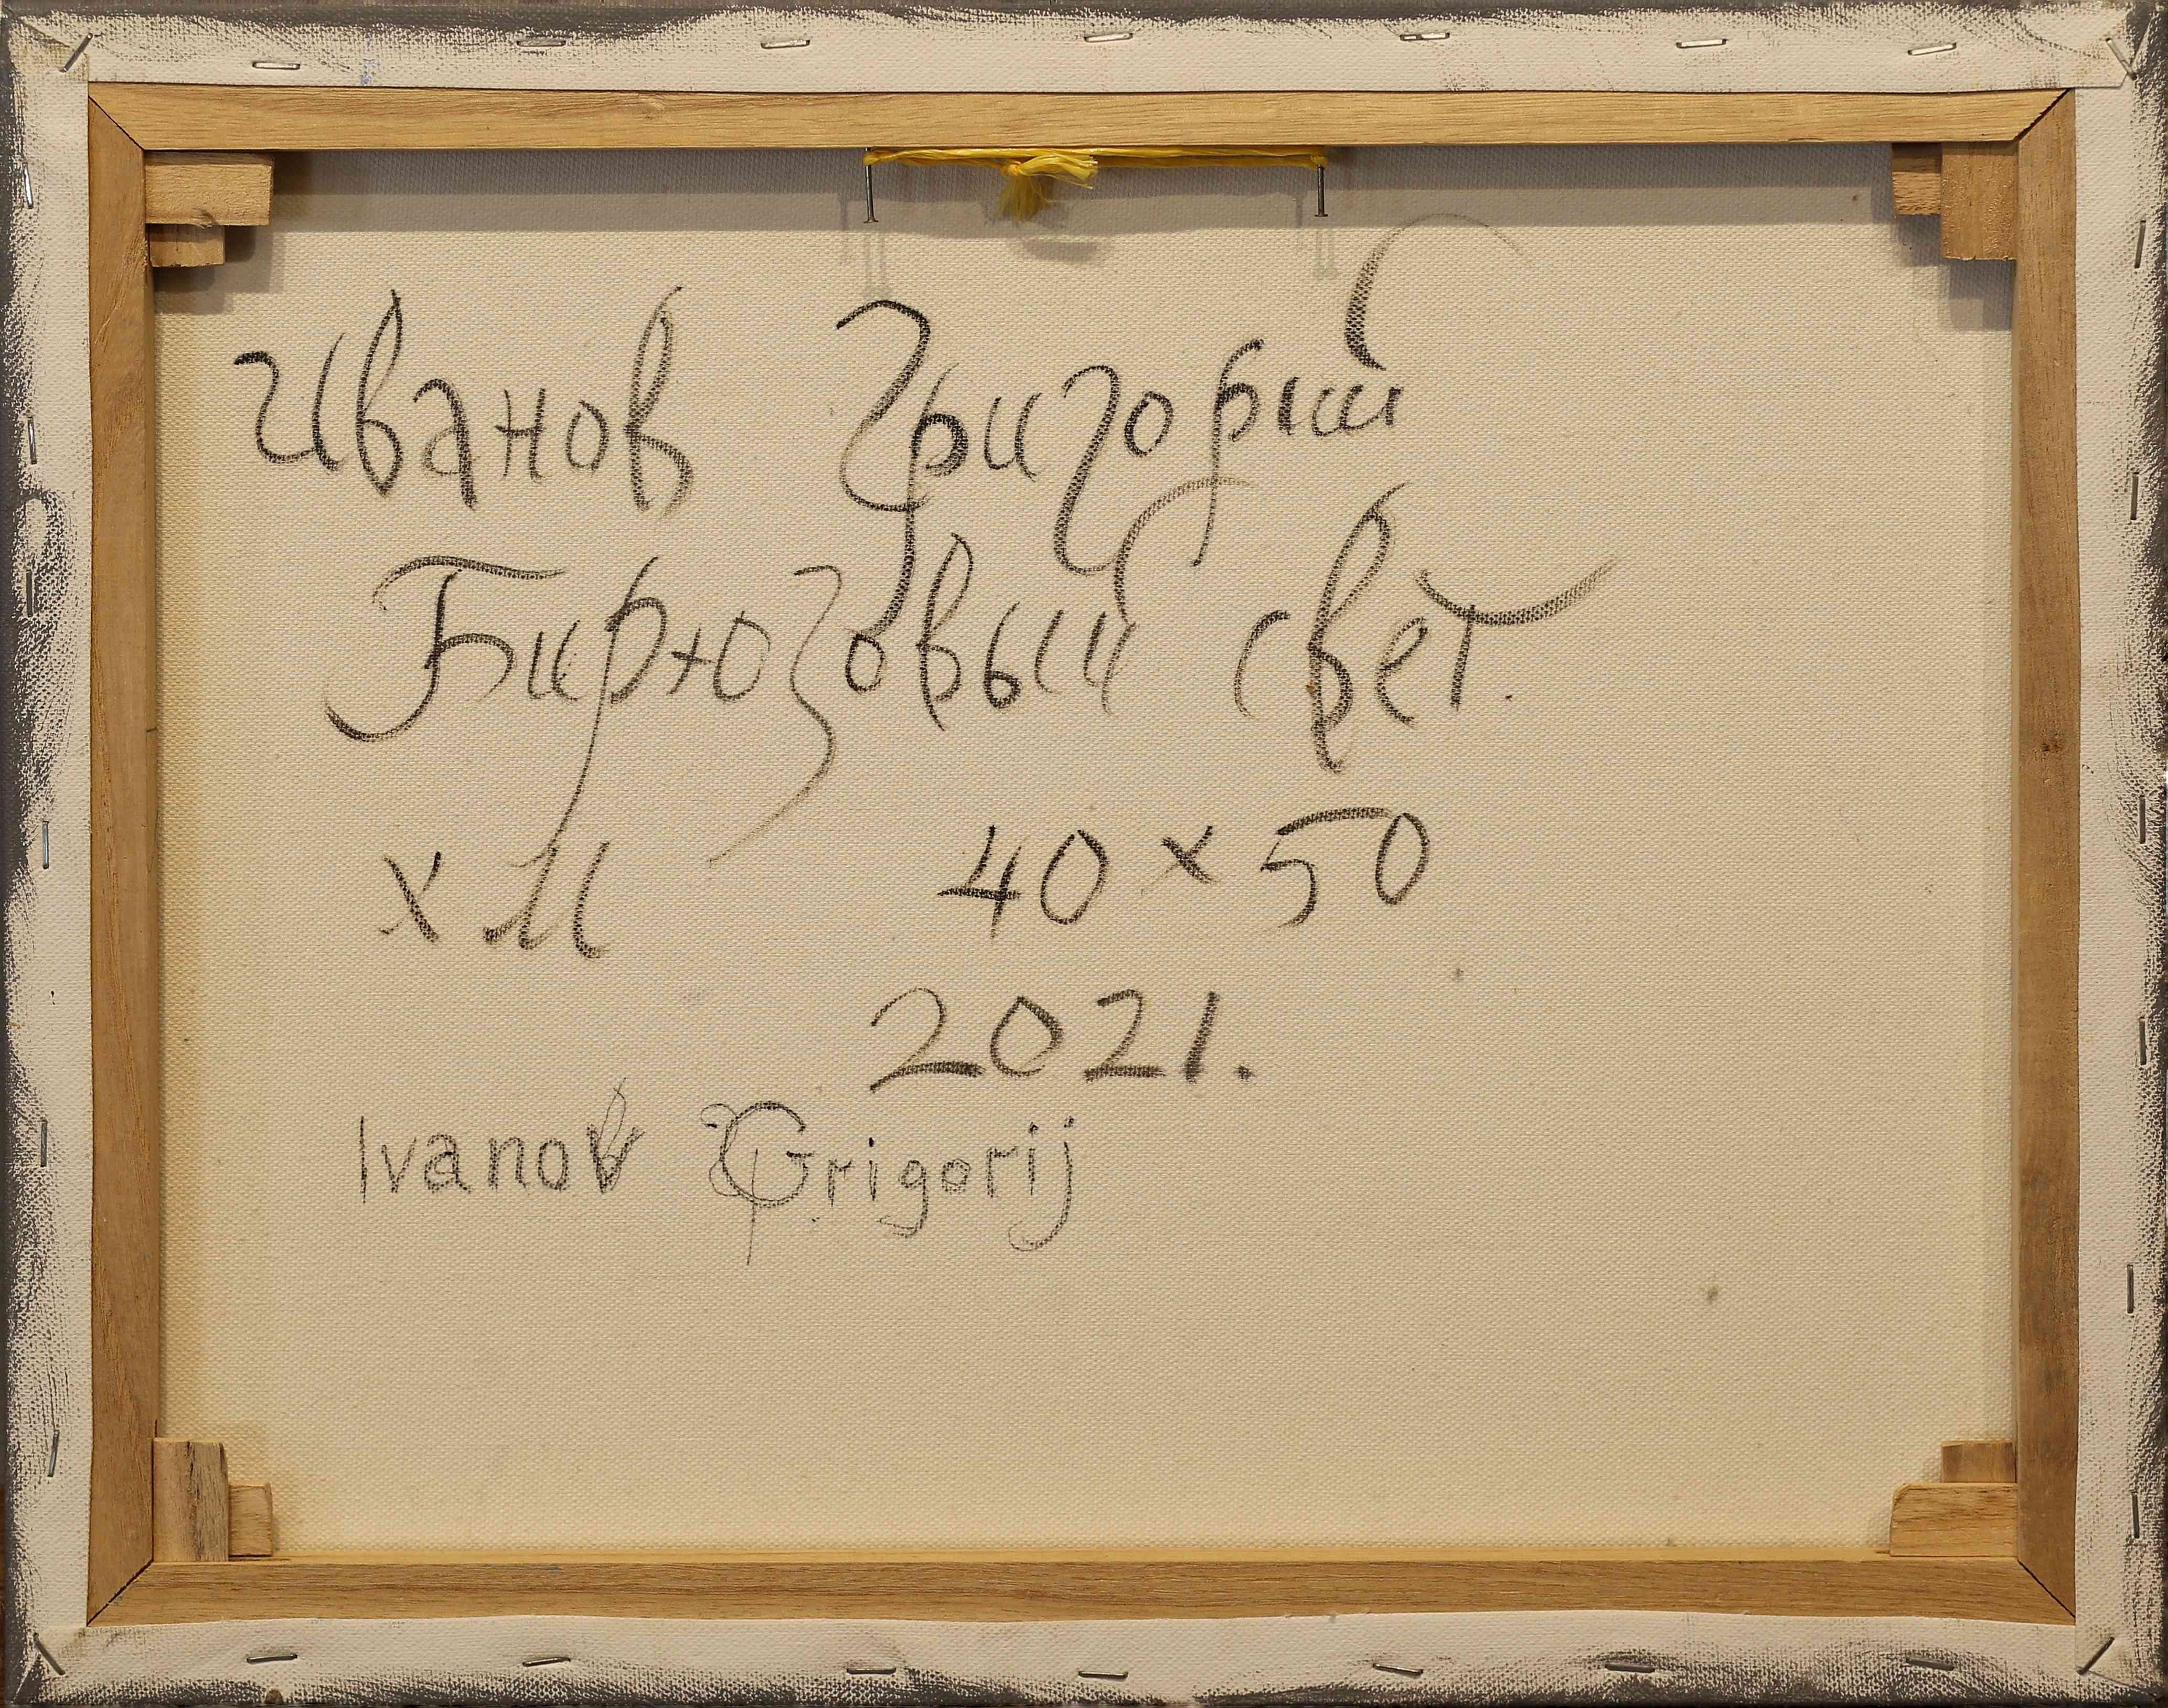 Иванов Григорий
Бирюзовый свет.
х м 40 × 50
2021.
Ivanov Grigorij